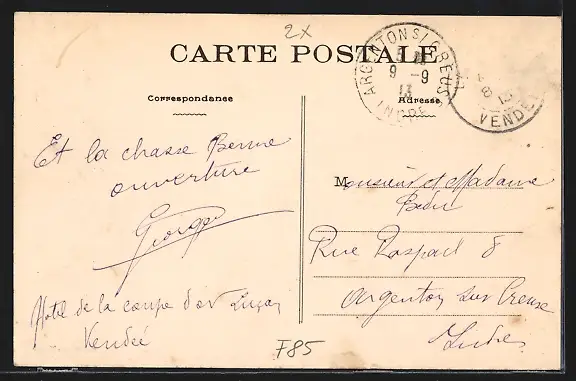 2x
CARTE POSTALE
Correspondance
Adresse
ARGENTON S/CREUSE
9 -9
13
INDRE
13
VENDÉE
Et la chasse Bonne
ouverture
Georges
Hotel de la coupe d'or Luçon
Vendée
Monsieur et Madame
Rue Raspail 8
Argenton sur Creuse
Indre
F85